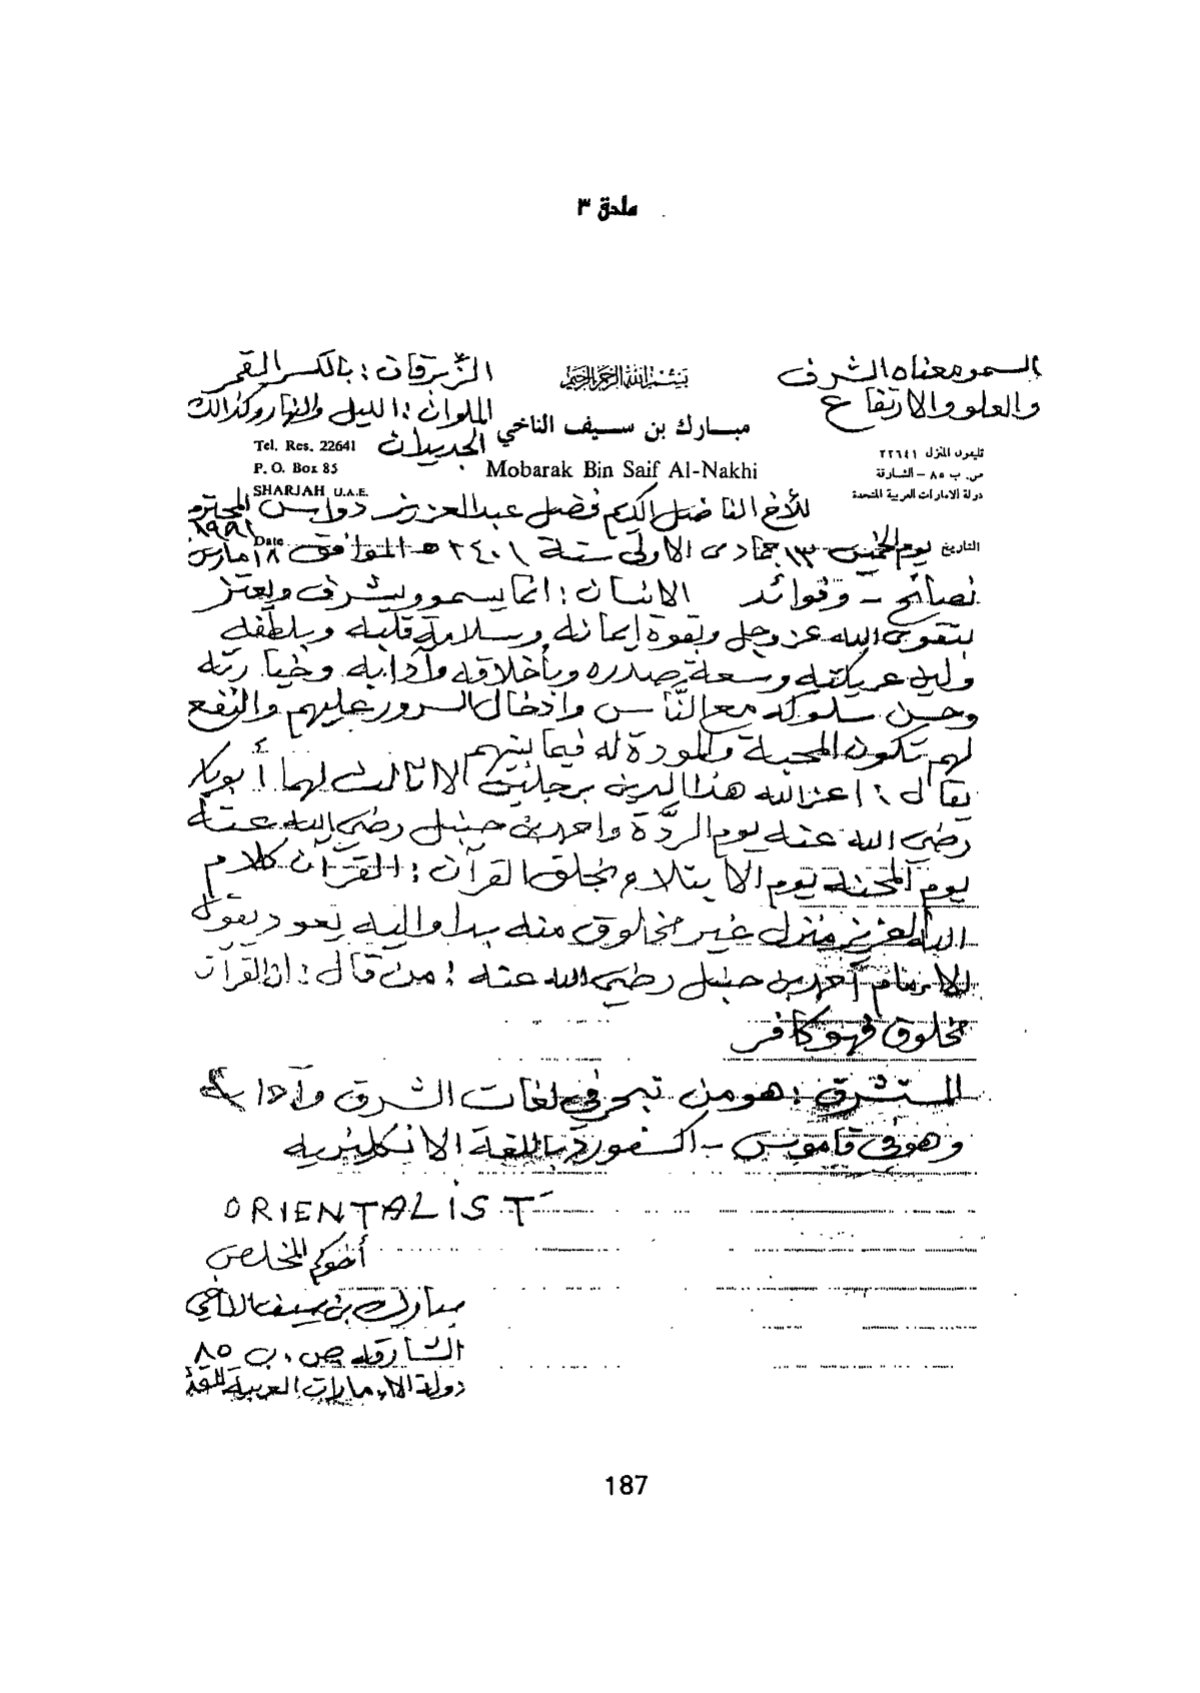 ملحق ٣
السمو معناه الشرف
والعلو والارتفاع
بسم الله الرحمن الرحيم
الزّبرقان : بالكسر القمر
الملوان : الليل والنهار وكذالك
الجديدان
مبارك بن سيف الناخي
Mobarak Bin Saif Al-Nakhi
تليفون المنزل ٢٢٦٤١
ص. ب ٨٥ – الشارقة
دولة الامارات العربية المتحدة
Tel. Res. 22641
P. O. Box 85
SHARJAH U.A.E.
للأخ الفاضل الكريم فضل عبدالعزيز دوايس المحترم
التاريخ يوم الخميس ١٣ جمادى الاولى سنة ١٤٠٢ هـ الموافق ١٨ مارس Date
نصائح – وفوائد الانسان : انما يسمو ويشرف ويعتز
بتقوى الله عز وجل وبقوة إيمانه وسلامة قلبه وبلطفه
ولين عريكته وسعة صدره وبأخلاقه وآدابه
وحسن سلوكه مع النّاس وادخال السرور عليهم والنفع
لهم تكون المحبة والمودة له فيما بينهم
يقال : اعز الله هذا الدين برجلين لا ثالث لهما أبوبكر
رضي الله عنه يوم الردّة واحمد بن حنبل رضي الله عنه
يوم المحنة يوم الابتلاء بخلق القرآن : القرآن كلام
الله العزيز منزل غير مخلوق منه بدا واليه يعود يقول
الإمام أحمد بن حنبل رضي الله عنه : من قال : ان القرآن
مخلوق فهو كافر
المستشرق : هو من تبحر في لغات الشرق وآدابه
وهو في قاموس – اكسفورد باللغة الانكليزية
ORIENTALIST –
أخوكم المخلص
مبارك بن سيف الناخي
الشارقة ص . ب ٨٥
دولة الإمارات العربية المتحدة
187